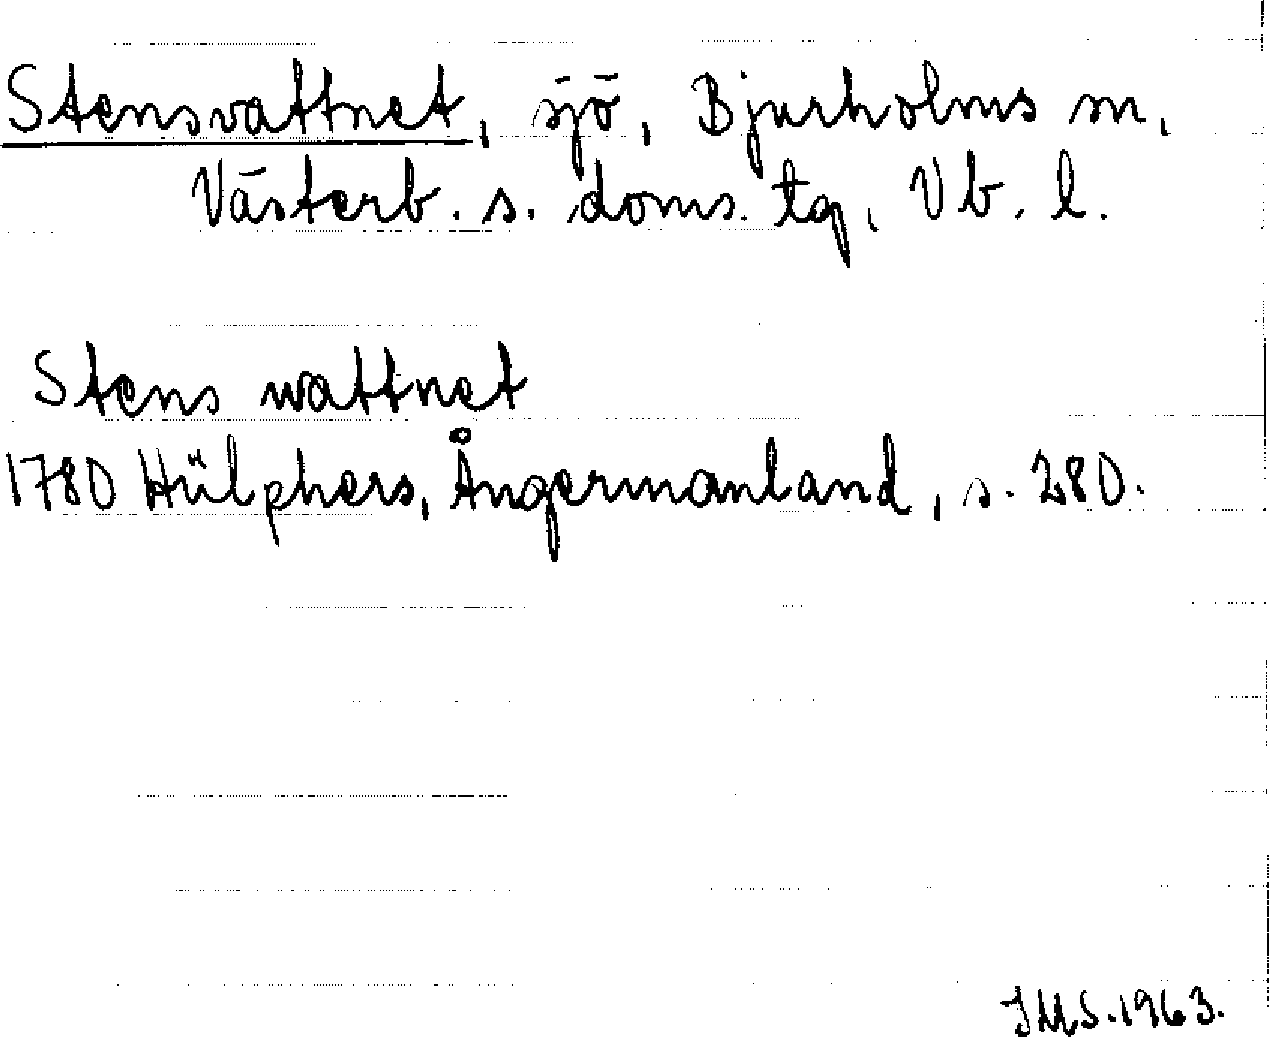 Stensvattnet, sjö, Bjurholms sn,
Västerb. s. doms. tg, Vb. l.
Stens wattnet
1780 Hülphers, Ångermanland, s. 280.
JMS. 1963.